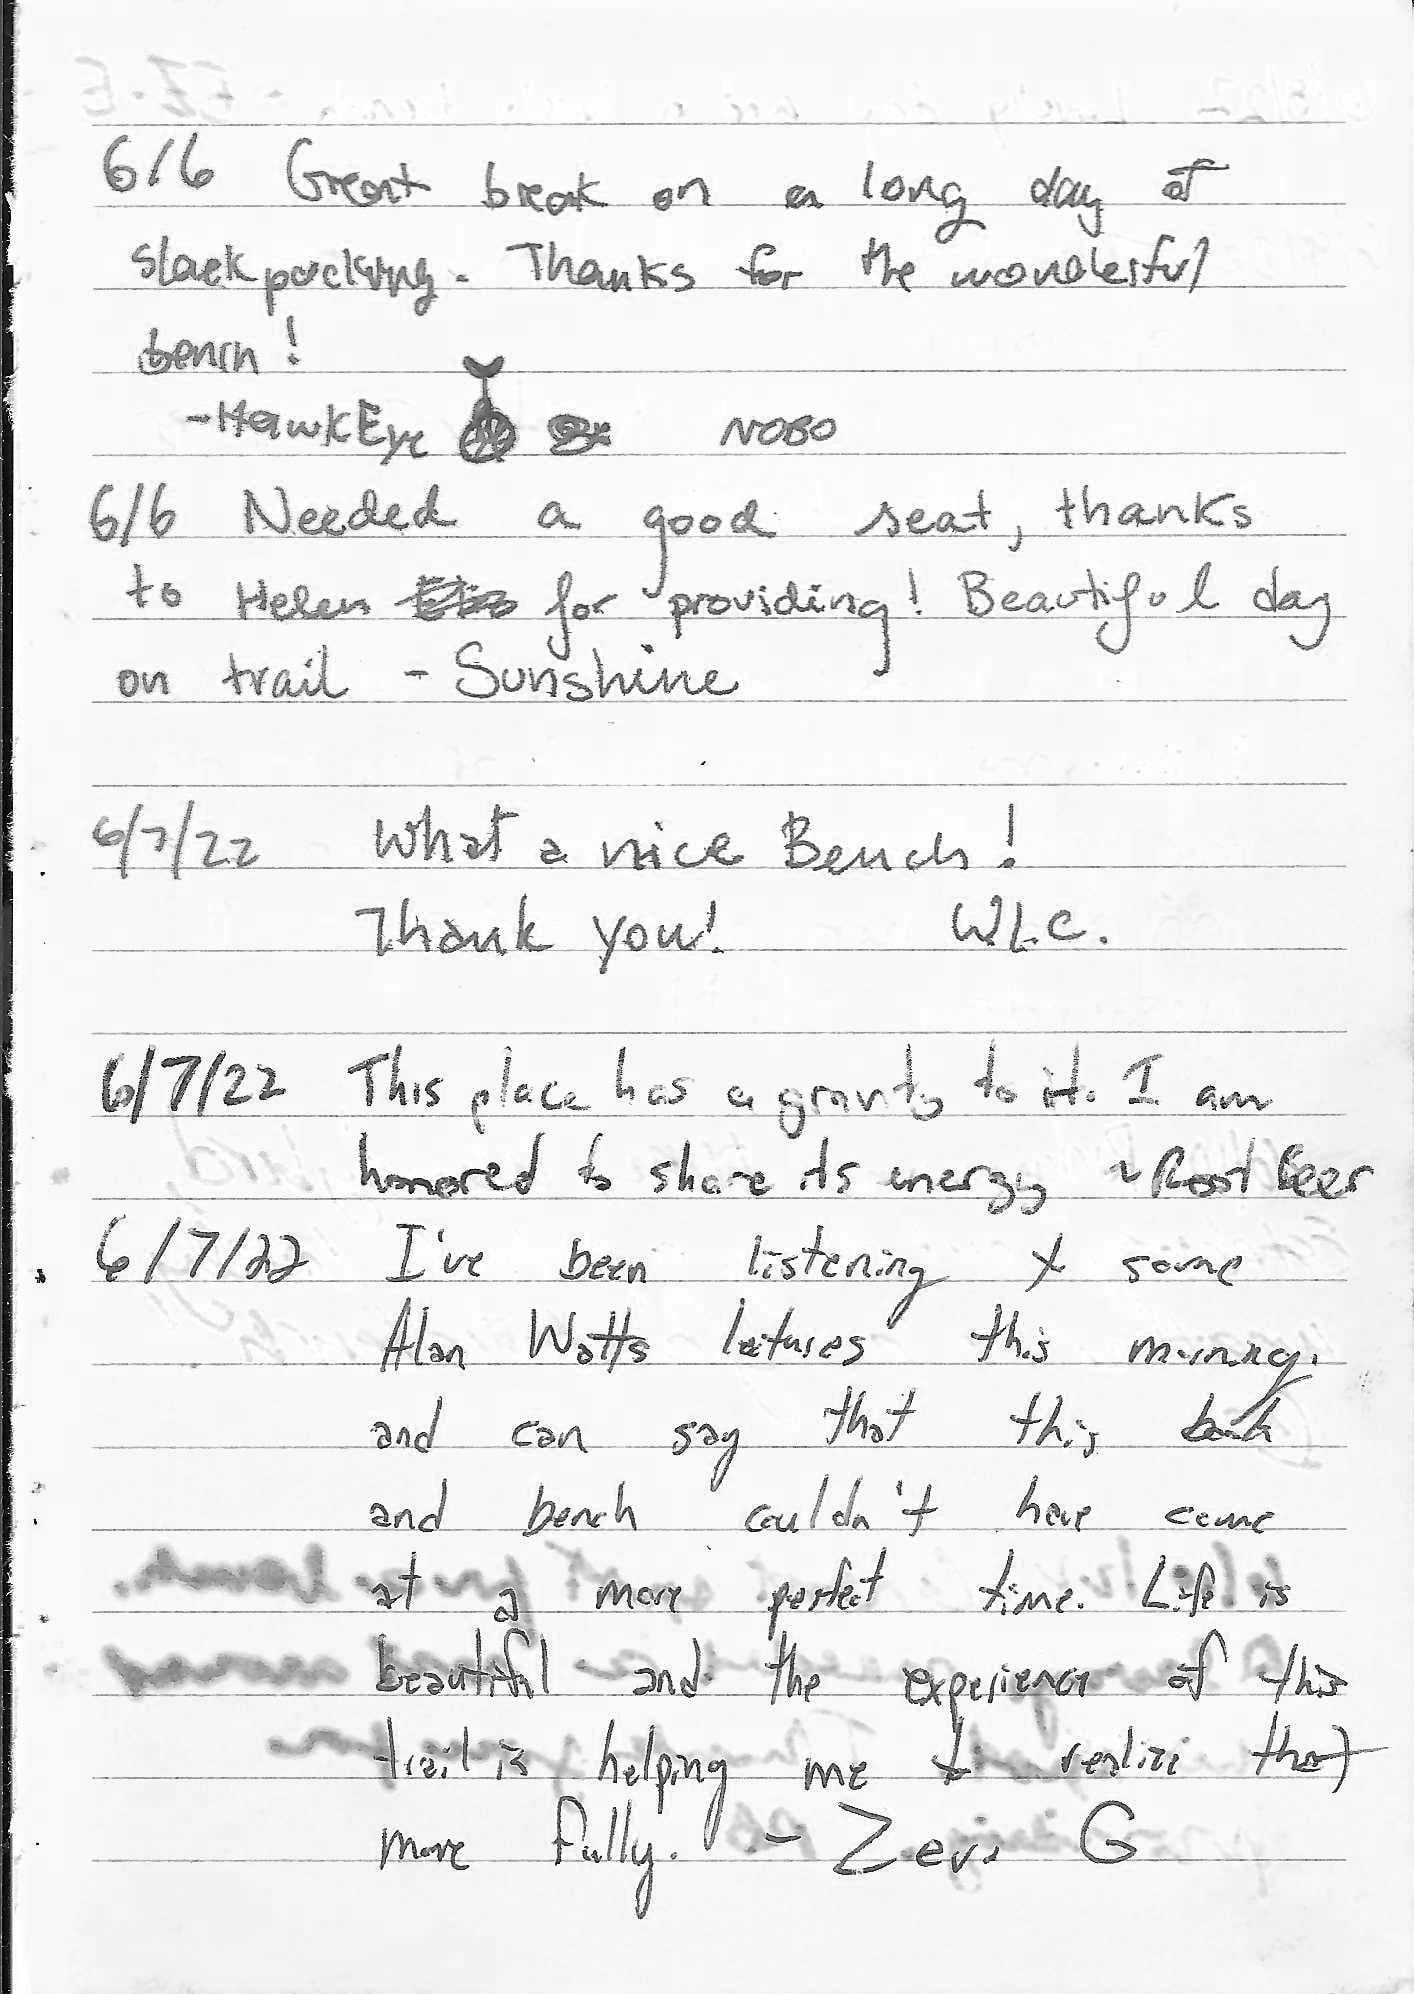 6/6 Great break on a long day of
slackpacking. Thanks for the wonderful
bench!
-HawkEye NOBO
6/6 Needed a good seat, thanks
to Helen for providing! Beautiful day
on trail - Sunshine
6/7/22 What a nice Bench!
Thank you! W.L.C.
6/7/22 This place has a gravity to it. I am
honored to share its energy ~ Root Beer
6/7/22 I've been listening to some
Alan Watts lectures this morning.
and can say that this
and bench couldn't have come
at a more perfect time. Life is
beautiful and the experience of this
trail is helping me to realize that
more fully. - Zero G